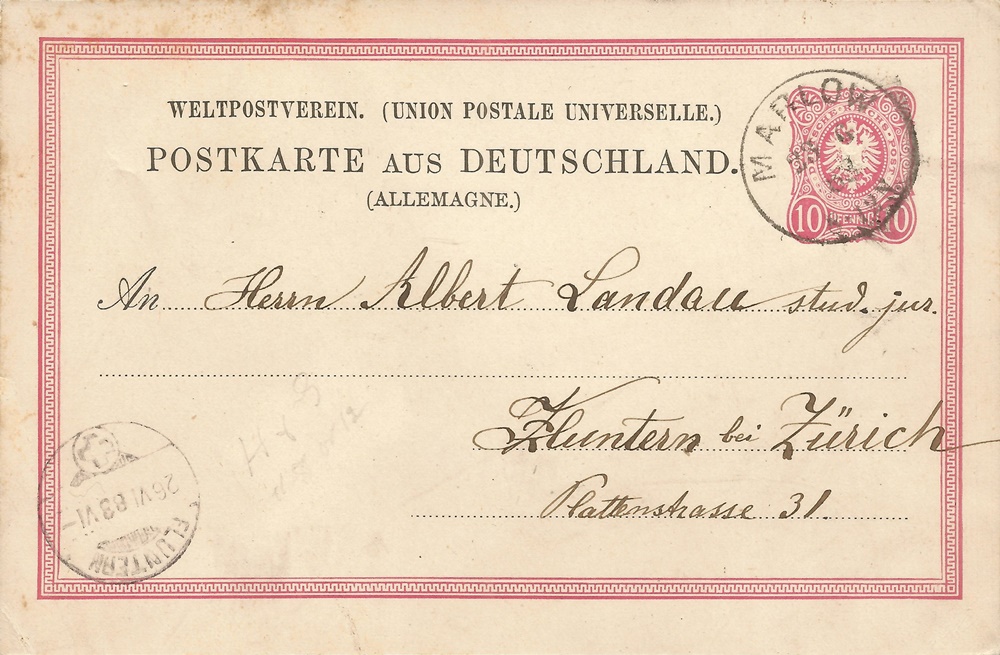 WELTPOSTVEREIN. (UNION POSTALE UNIVERSELLE.)
POSTKARTE AUS DEUTSCHLAND.
(ALLEMAGNE.)
MARLOW
DEUTSCHE REICHS-POST
10 PFENNIG 10
An Herrn Albert Landau stud. jur.
Fluntern bei Zürich
Plattenstrasse 31.
26 VI 83 VI
FLUNTERN